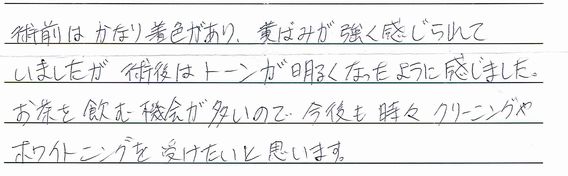 術前はかなり着色があり、黄ばみが強く感じられて
いましたが術後はトーンが明るくなったように感じました。
お茶を飲む機会が多いので今後も時々クリーニングや
ホワイトニングを受けたいと思います。